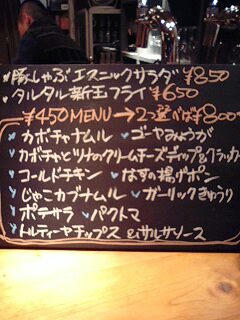 豚しゃぶエスニックサラダ ¥850
タルタル新玉フライ ¥650
¥450MENU→2つ選べば¥800
カボチャナムル ゴーヤみょうが
カボチャとツナのクリームチーズディップ&クラッカー
コールドチキン なすの揚げポン
じゃこカブナムル ガーリックきゅうり
ポテサラ パクトマ
トルティーヤチップス &サルサソース